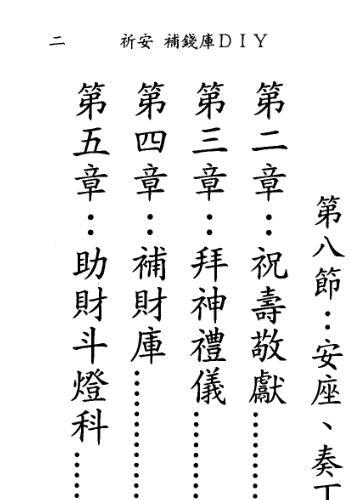 二 祈安 補錢庫DIY
第八節：安座、奏
第二章：祝壽敬獻……
第三章：拜神禮儀……
第四章：補財庫……
第五章：助財斗燈科……